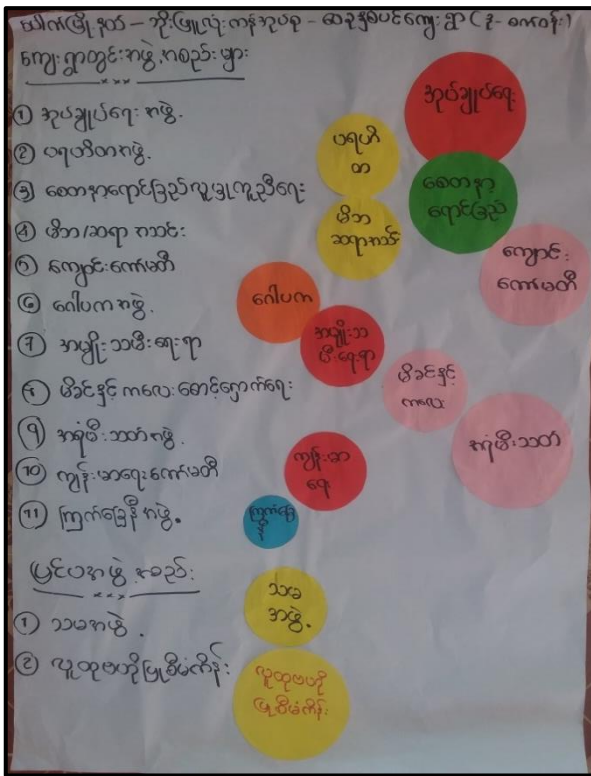 ကျေးရွာတွင်းအဖွဲ့အစည်းများ
① အုပ်ချုပ်ရေးအဖွဲ့
② ပရဟိတအဖွဲ့
③ စေတနာ့ရောင်ခြည်လူမှုကူညီရေး
④ မိဘ/ဆရာအသင်း
⑤ ကျောင်းကော်မတီ
⑥ ဂေါပကအဖွဲ့
⑦ အမျိုးသမီးရေးရာ
⑧ မိခင်နှင့်ကလေးစောင့်ရှောက်ရေး
⑨ အရံမီးသတ်အဖွဲ့
⑩ ကျန်းမာရေးကော်မတီ
⑪ ကြက်ခြေနီအဖွဲ့
ပြင်ပအဖွဲ့အစည်း
① သမအဖွဲ့
② လူထုဗဟိုပြုစီမံကိန်း
အုပ်ချုပ်ရေး
ပရဟိ
တ
စေတနာ့
ရောင်ခြည်
မိဘ
ဆရာအသင်း
ကျောင်း
ကော်မတီ
ဂေါပက
အမျိုးသ
မီးရေးရာ
မိခင်နှင့်
ကလေး
အရံမီးသတ်
ကျန်းမာ
ရေး
ကြက်ခြေ
နီ
သမ
အဖွဲ့
လူထုဗဟို
ပြုစီမံကိန်း